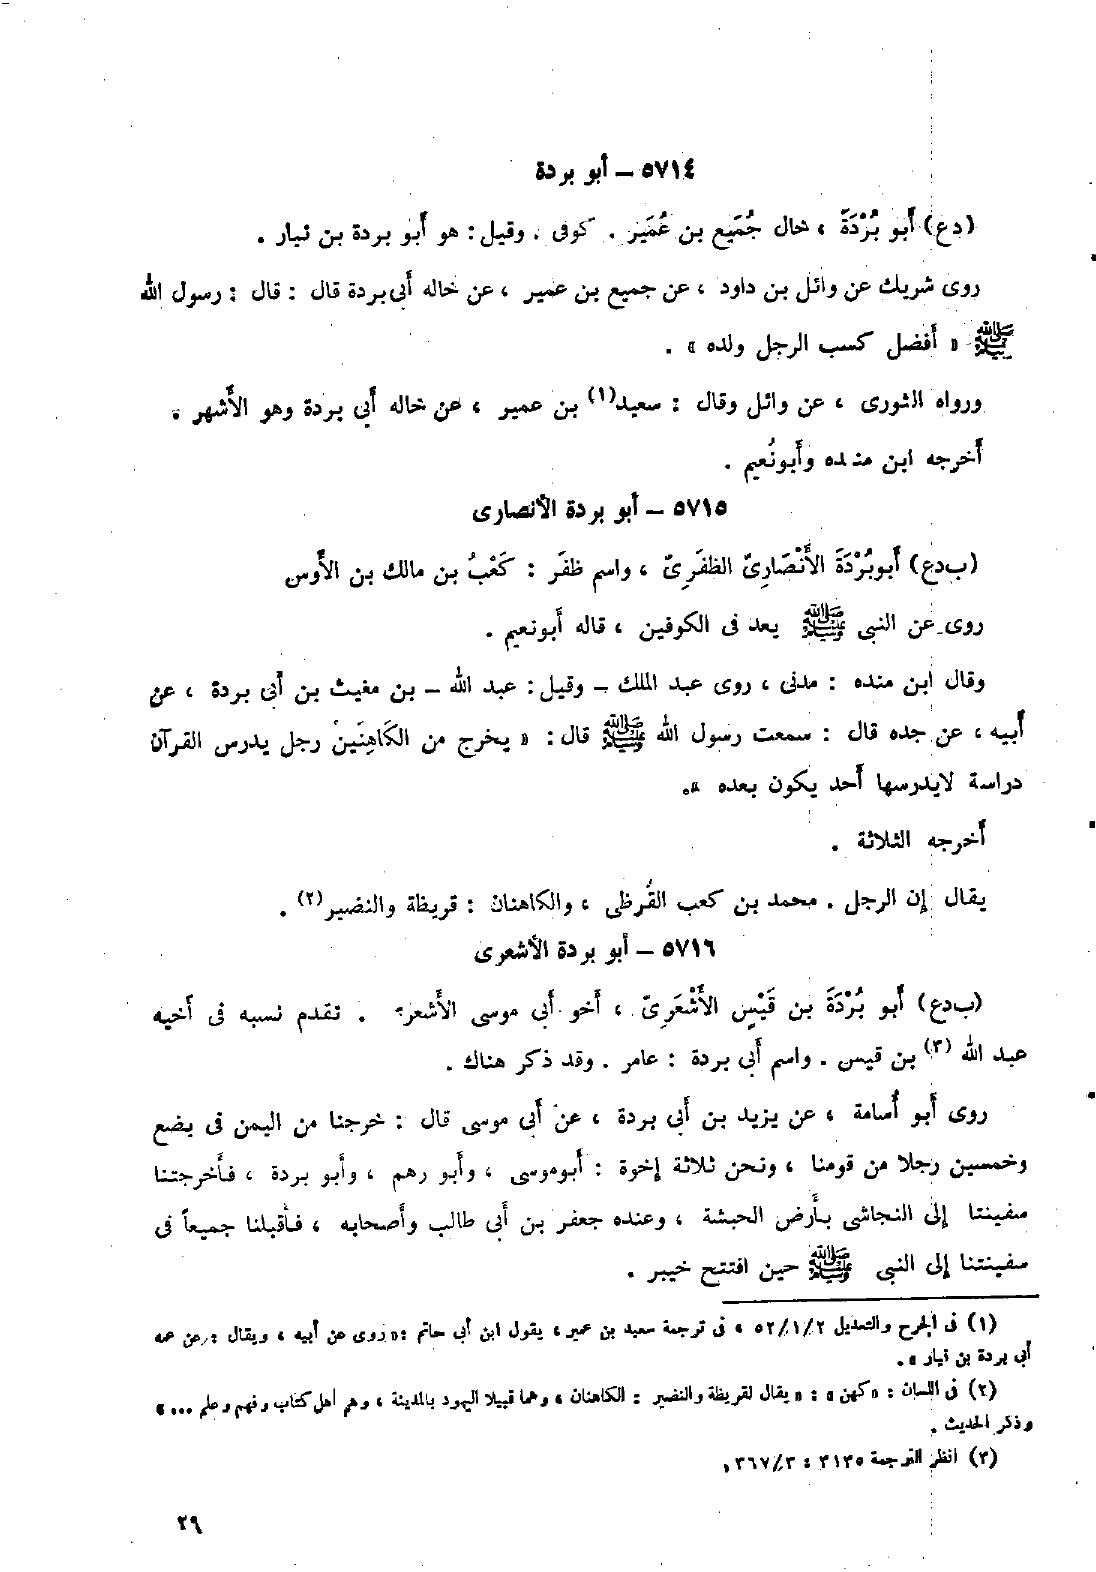 ٥٧١٤ – أبو بردة
(دع) أبو بُرْدَةَ ، خال جُمَيع بن عُمَير . كوفى . وقيل : هو أبو بردة بن نيار .
روى شريك عن وائل بن داود ، عن جميع بن عمير ، عن خاله أبى بردة قال : قال : رسول الله
ﷺ « أفضل كسب الرجل ولده » .
ورواه الثورى ، عن وائل وقال : سعيد(١) بن عمير ، عن خاله أبي بردة وهو الأشهر .
أخرجه ابن منده وأبونُعيم .
٥٧١٥ – أبو بردة الأنصارى
(ب دع) أبوبُرْدَةَ الأَنْصَارِىّ الظفَرِىّ ، واسم ظفَر : كَعْبُ بن مالك بن الأوس
روى عن النبى ﷺ يعد فى الكوفين ، قاله أبونعيم .
وقال ابن منده : مدنى ، روى عبد الملك – وقيل : عبد الله – بن مغيث بن أبى بردة ، عن
أبيه ، عن جده قال : سمعت رسول الله ﷺ قال : « يخرج من الكَاهِنَين رجل يدرس القرآن
دراسة لايدرسها أحد يكون بعده ».
أخرجه الثلاثة .
يقال إن الرجل . محمد بن كعب القُرظى ، والكاهنان : قريظة والنضير(٢) .
٥٧١٦ – أبو بردة الأشعرى
(ب دع) أبو بُرْدَةَ بن قَيْسٍ الأَشْعَرِىّ ، أخو أبي موسى الأشعر . تقدم نسبه فى أخيه
عبد الله (٣) بن قيس . واسم أبي بردة : عامر . وقد ذكر هناك .
روى أبو أسامة ، عن يزيد بن أبي بردة ، عن أبي موسى قال : خرجنا من اليمن فى بضع
وخمسين رجلا من قومنا ، ونحن ثلاثة إخوة : أبوموسى ، وأبو رهم ، وأبو بردة ، فأخرجتنا
سفينتنا إلى النجاشى بأرض الحبشة ، وعنده جعفر بن أبى طالب وأصحابه ، فأقبلنا جميعاً فى
سفينتنا إلى النبى ﷺ حين افتتح خيبر .
(١) فى الجرح والتعديل ٥٢/١/٢ ، فى ترجمة سعيد بن عمير ، يقول ابن أبى حاتم : « روى عن أبيه ، ويقال : عن عمه
أبى بردة بن نيار » .
(٢) فى اللسان : « كهن » : « يقال لقريظة والنضير : الكاهنان ، وهما قبيلا اليهود بالمدينة ، وهم أهل كتاب وفهم وعلم ... »
وذكر الحديث .
(٣) انظر الترجمة ٣١٣٥ : ٣٦٧/٣ .
٢٩